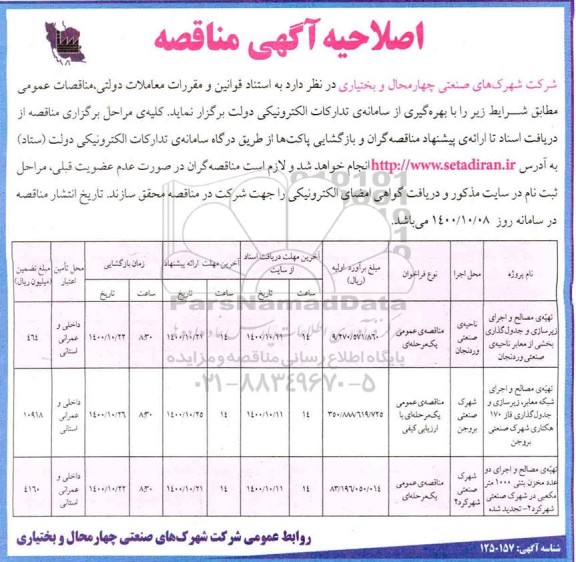 اصلاحیه آگهی مناقصه
شرکت شهرک‌های صنعتی چهارمحال و بختیاری در نظر دارد به استناد قوانین و مقررات معاملات دولتی،مناقصات عمومی
مطابق شرایط زیر را با بهره‌گیری از سامانه‌ی تدارکات الکترونیکی دولت برگزار نماید. کلیه‌ی مراحل برگزاری مناقصه از
دریافت اسناد تا ارائه‌ی پیشنهاد مناقصه‌گران و بازگشایی پاکت‌ها از طریق درگاه سامانه‌ی تدارکات الکترونیکی دولت (ستاد)
به آدرس http://www.setadiran.ir انجام خواهد شد و لازم است مناقصه‌گران در صورت عدم عضویت قبلی، مراحل
ثبت نام در سایت مذکور و دریافت گواهی امضای الکترونیکی را جهت شرکت در مناقصه محقق سازند. تاریخ انتشار مناقصه
در سامانه روز ۱۴۰۰/۱۰/۰۸ می‌باشد.
نام پروژه محل اجرا نوع فراخوان مبلغ برآورد اولیه (ریال) آخرین مهلت دریافت اسناد از سایت آخرین مهلت ارائه پیشنهاد زمان بازگشایی محل تأمین اعتبار مبلغ تضمین (میلیون ریال)
ساعت تاریخ ساعت تاریخ ساعت تاریخ
تهیّه‌ی مصالح و اجرای زیرسازی و جدول‌گذاری بخشی از معابر ناحیه‌ی صنعتی وردنجان ناحیه‌ی صنعتی وردنجان مناقصه‌ی عمومی یک‌مرحله‌ای ۹/۲۷۰/۵۷۱/۸۶۰ ۱۴ ۱۴ ۸:۳۰ ۱۴۰۰/۱۰/۲۲ داخلی و عمرانی استانی ۴۶۴
تهیّه‌ی مصالح و اجرای شبکه معابر، زیرسازی و جدول‌گذاری فاز ۱۷۰ هکتاری شهرک صنعتی بروجن شهرک صنعتی بروجن مناقصه‌ی عمومی یک‌مرحله‌ای با ارزیابی کیفی ۳۵۰/۸۸۸/۶۱۹/۷۲۵ ۱۴ ۱۴۰۰/۱۰/۱۱ ۱۴ ۱۴۰۰/۱۰/۲۵ ۸:۳۰ ۱۴۰۰/۱۰/۲۶ داخلی و عمرانی استانی ۱۰۹۱۸
تهیّه‌ی مصالح و اجرای دو عدد مخزن بتنی ۱۰۰۰ متر مکعبی در شهرک صنعتی شهرکرد۲- تجدید شده شهرک صنعتی شهرکرد۲ مناقصه‌ی عمومی یک‌مرحله‌ای ۸۳/۱۹۶/۰۵۰/۰۱۴ ۱۴ ۱۴۰۰/۱۰/۱۱ ۱۴ ۱۴۰۰/۱۰/۲۱ ۸:۳۰ ۱۴۰۰/۱۰/۲۲ داخلی و عمرانی استانی ۴۱۶۰
ParsNamadData
پایگاه اطلاع رسانی مناقصه و مزایده
۰۲۱-۸۸۳۴۹۶۷۰-۵
روابط عمومی شرکت شهرک‌های صنعتی چهارمحال و بختیاری
شناسه آگهی: ۱۲۵۰۱۵۷